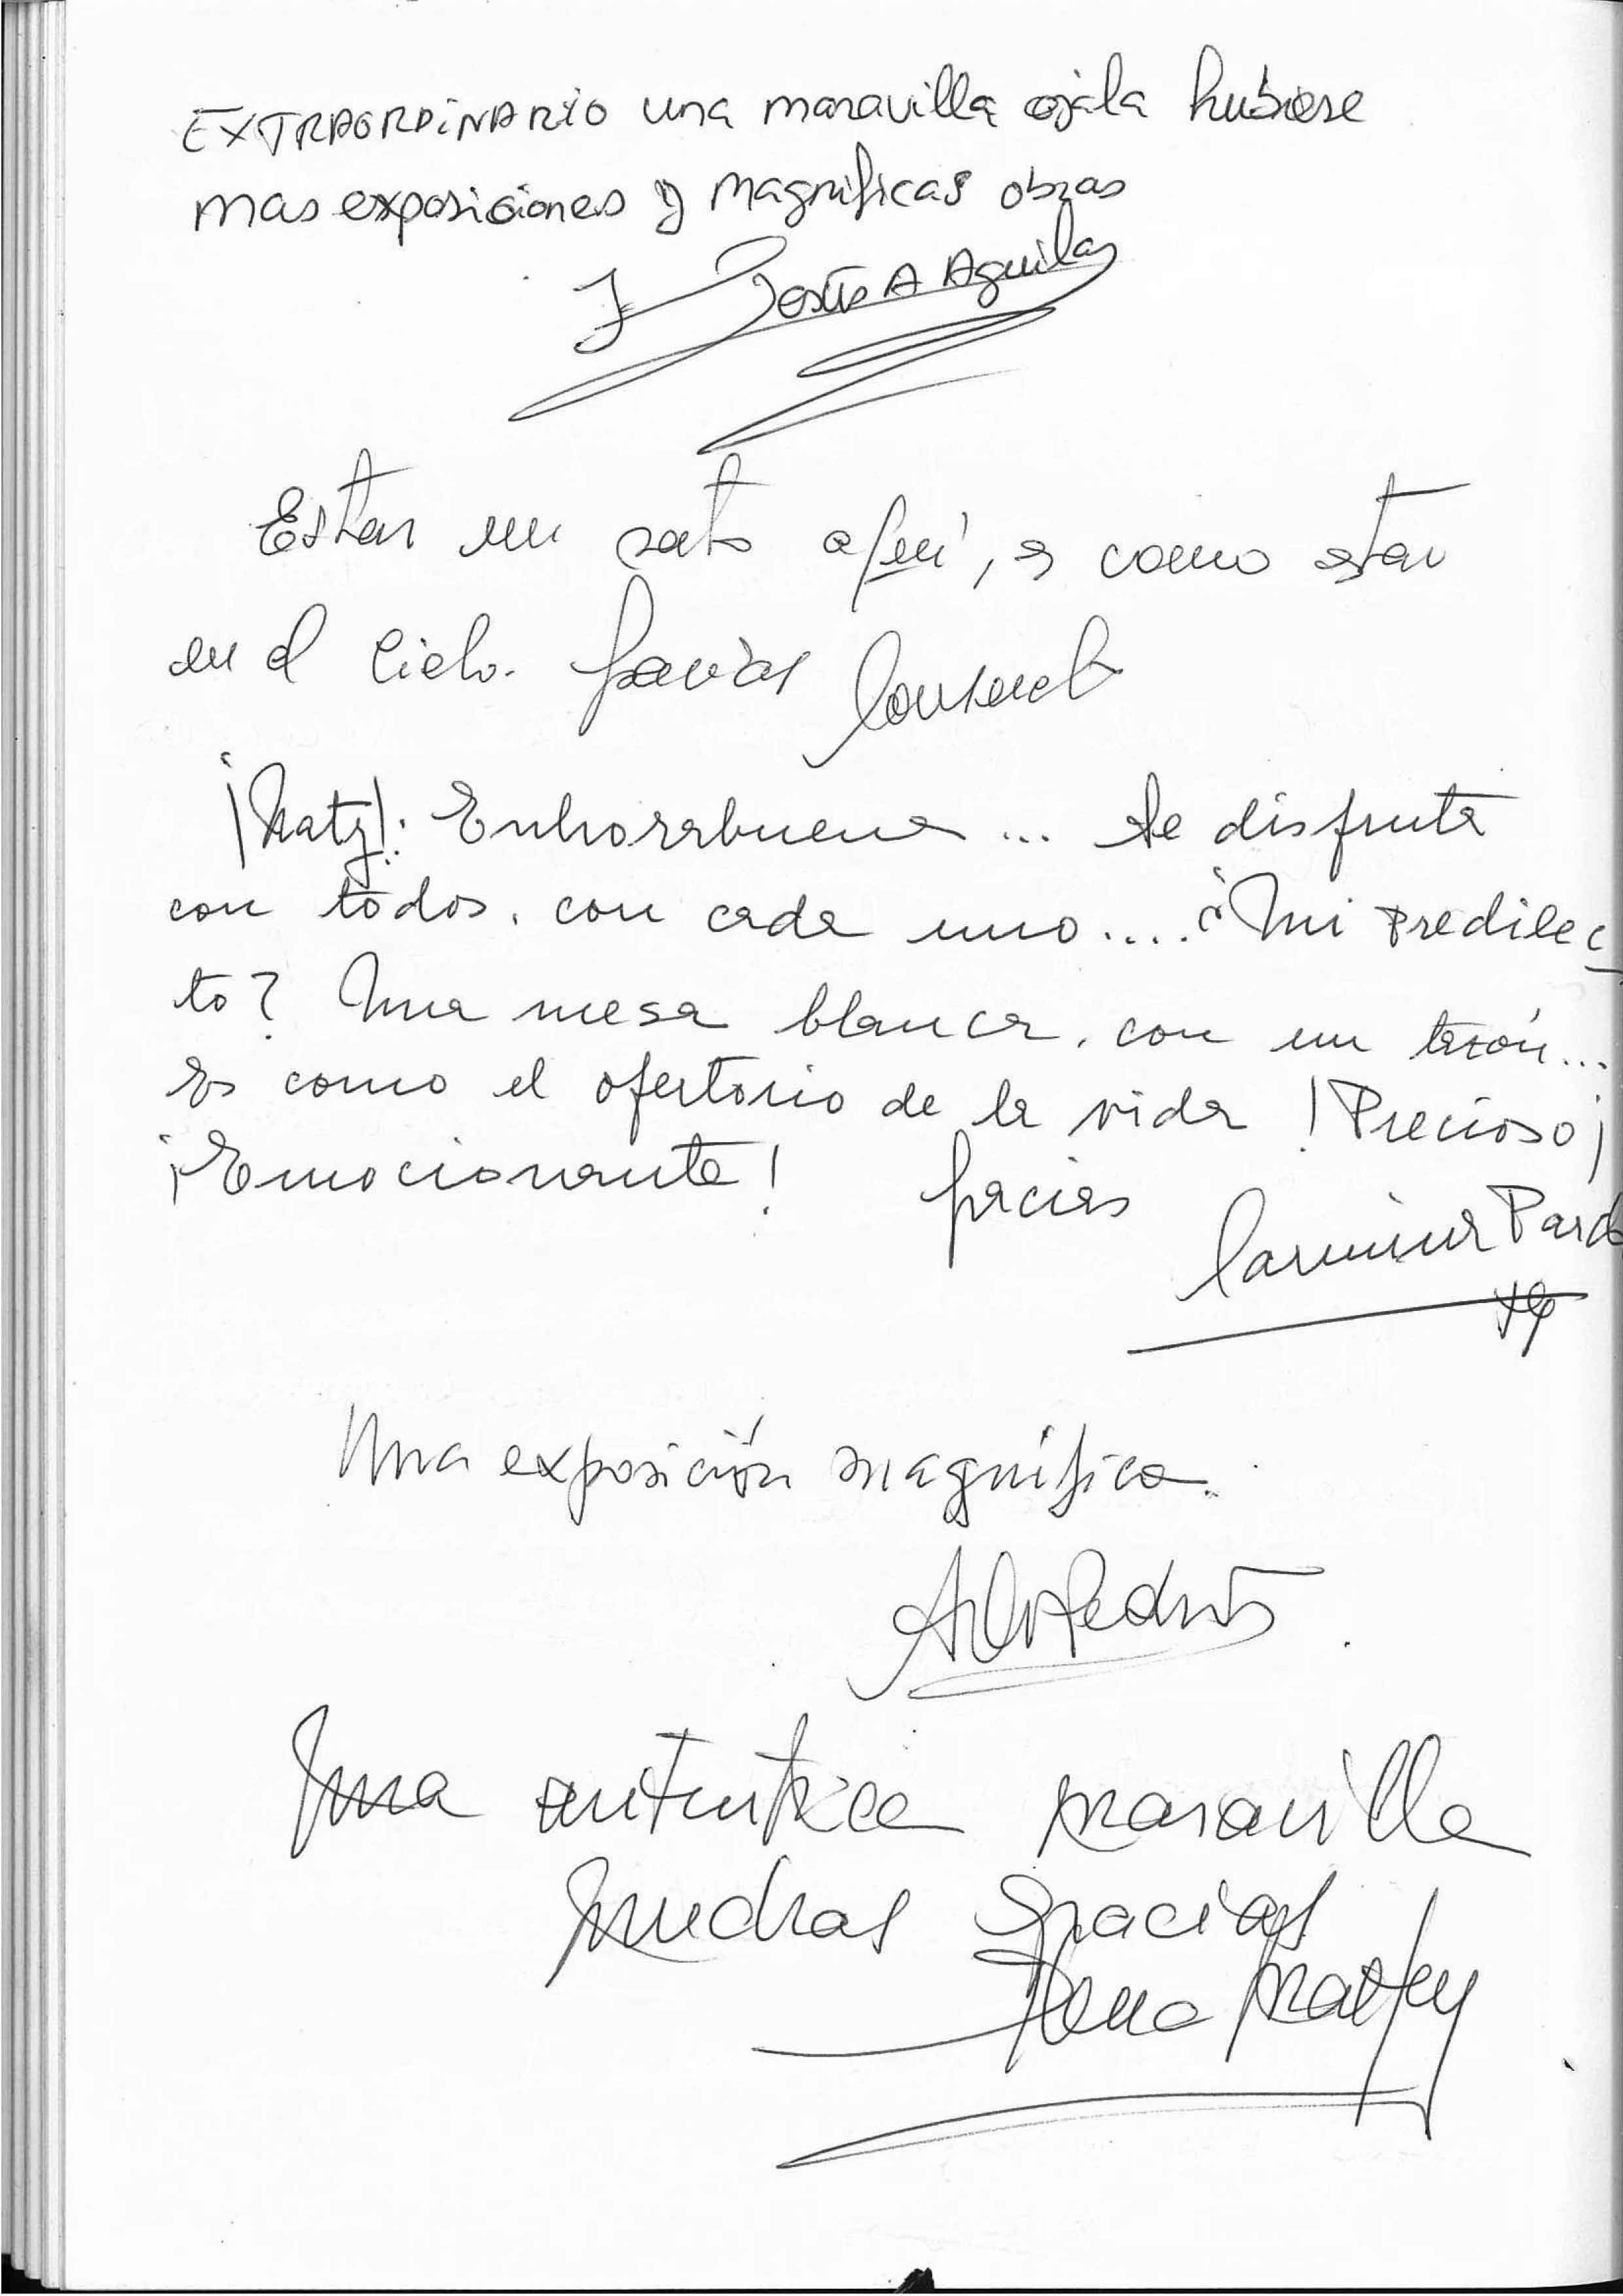 EXTRAORDINARIO una maravilla ojala hubiese
mas exposiciones y magnificas obras
J Jesús A Aguilar
Estar un rato aquí, es como estar
en el Cielo. Gracias Consuelo
¡Naty!: Enhorabuena... Se disfruta
con todos, con cada uno.... ¿Mi predilec
to? Una mesa blanca, con un tazón...
Es como el ofertorio de la vida !Precioso¡
¡Emocionante! Gracias
Carmina Pardo
Una exposición magnífica.
Una autentica maravilla
Muchas gracias